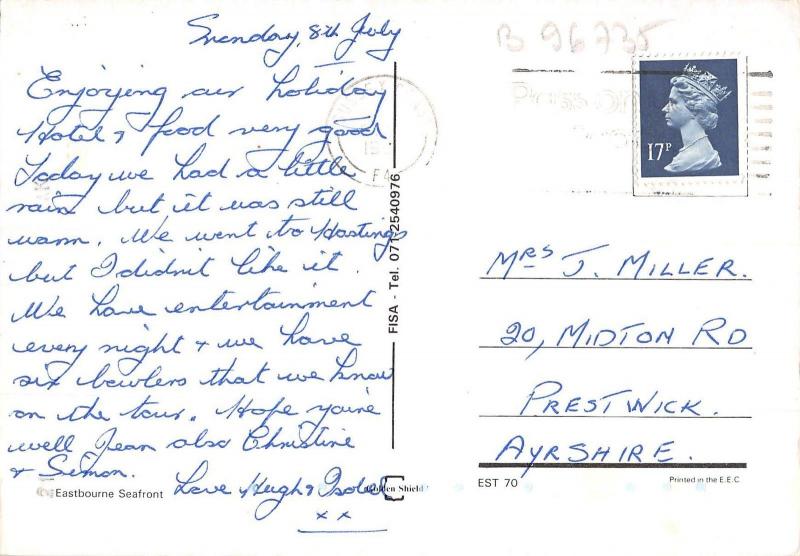 Sunday, 8th July
Enjoying our holiday
Hotel & food very good
Today we had a little
rain but it was still
warm. We went to Hastings
but I didn't like it.
We have entertainment
every night & we have
six bowlers that we know
on the tour. Hope you're
well Jean also Christine
& Simon.
Love Hugh & Isobel
x x
Eastbourne Seafront
Golden Shield
FISA - Tel. 071-2540976
B 96735
17P
MRS J. MILLER.
20, MIDTON RD
PRESTWICK.
AYRSHIRE.
EST 70
Printed in the E.E.C